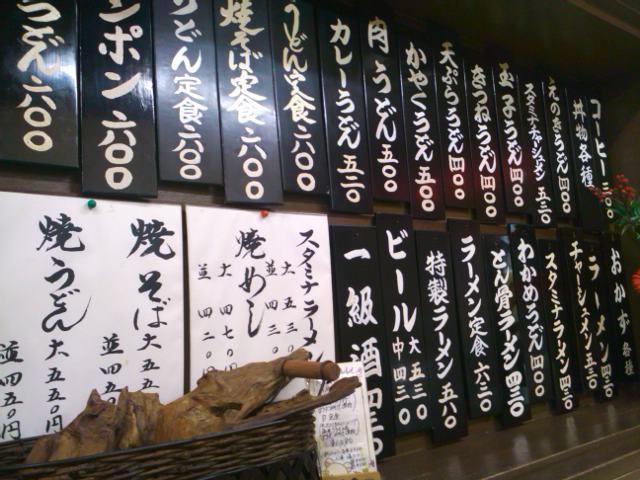 コーヒー
丼物各種
えのきうどん 五〇〇
スタミナチャーシューメン 五三〇
玉子うどん 四〇〇
きつねうどん 四〇〇
天ぷらうどん 四〇〇
かやくうどん 五〇〇
肉うどん 五〇〇
カレーうどん 五二〇
うどん定食 六〇〇
焼そば定食 六〇〇
うどん定食 六〇〇
ンポン 六〇〇
うどん 六〇〇
おかず各種
ラーメン 四三〇
チャーシュメン 五三〇
スタミナラーメン 四三〇
わかめうどん 四〇〇
とん骨ラーメン 四三〇
ラーメン定食 六三〇
特製ラーメン 五八〇
ビール 大 五三〇
中 四三〇
一級酒 四三〇
スタミナラーメン
大 五三〇
並 四三〇
焼めし
大 四七〇円
並 四二〇円
焼そば
大 五五
並 四五
焼うどん
大 五五〇円
並 四五〇円